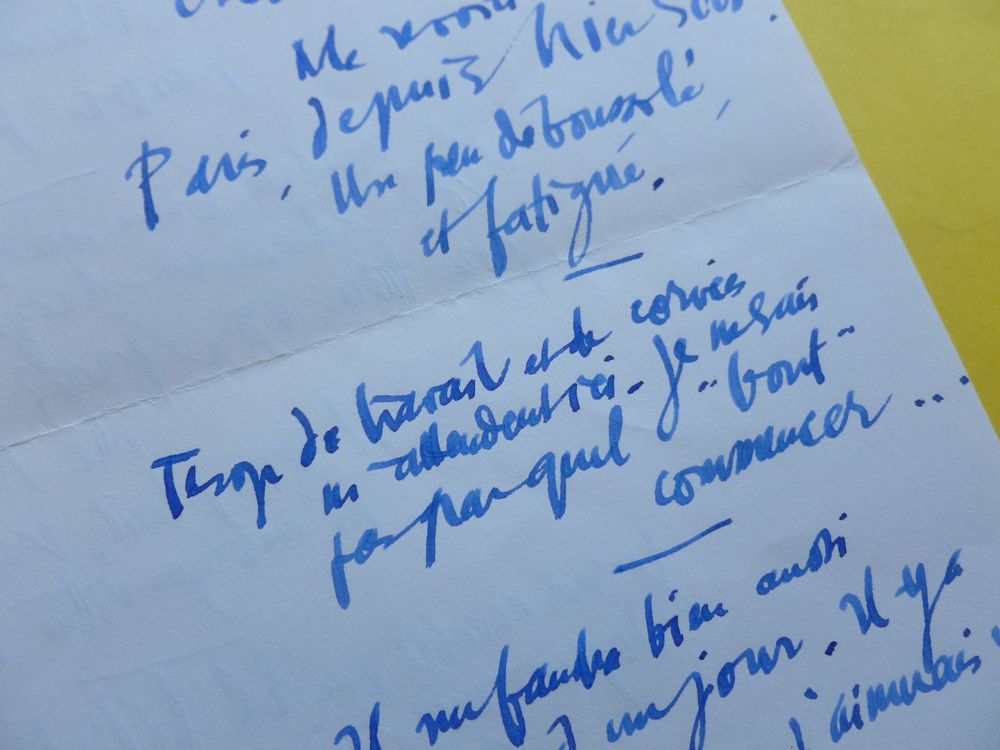 Me voici
Paris, depuis hier soir.
Un peu déboussolé,
et fatigué.
Trop de travail et de corvées
m'attendent ici - Je ne sais
pas par quel "bout"
commencer...
Il me faudra bien aussi
un jour. Il y a
j'aimerais